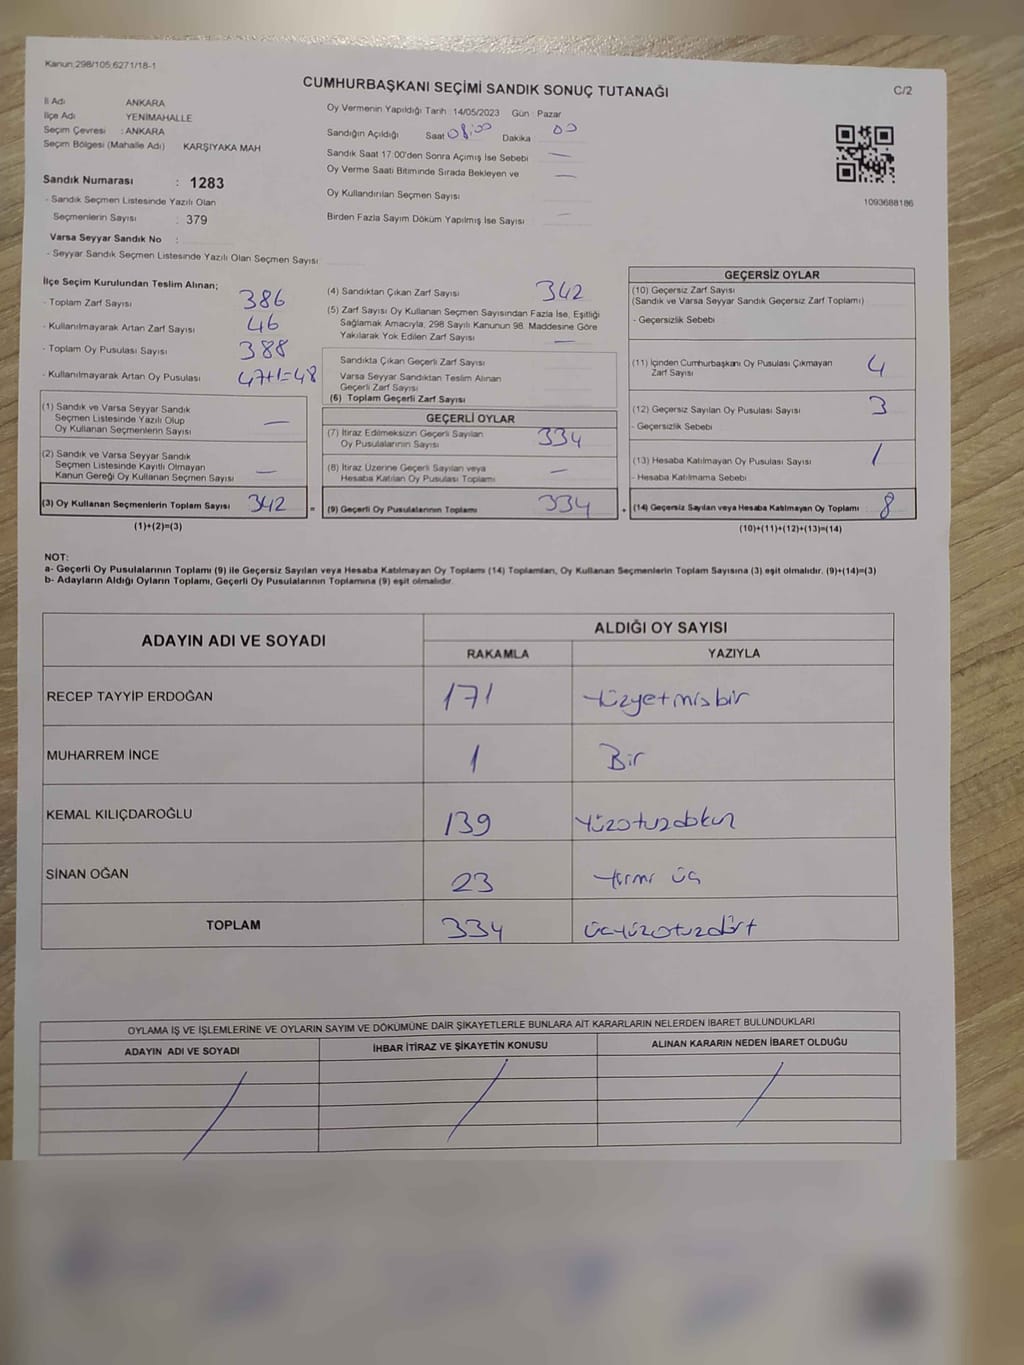 Kanun:298/105 6271/18-1
CUMHURBAŞKANI SEÇİMİ SANDIK SONUÇ TUTANAĞI
C/2
İl Adı ANKARA
İlçe Adı YENİMAHALLE
Seçim Çevresi : ANKARA
Seçim Bölgesi (Mahalle Adı) KARŞIYAKA MAH
Sandık Numarası : 1283
- Sandık Seçmen Listesinde Yazılı Olan
Seçmenlerin Sayısı : 379
Varsa Seyyar Sandık No :
- Seyyar Sandık Seçmen Listesinde Yazılı Olan Seçmen Sayısı
Oy Vermenin Yapıldığı Tarih : 14/05/2023 Gün : Pazar
Sandığın Açıldığı Saat 08:00 Dakika 00
Sandık Saat 17:00'den Sonra Açımış İse Sebebi —
Oy Verme Saati Bitiminde Sırada Bekleyen ve —
Oy Kullandırılan Seçmen Sayısı
Birden Fazla Sayım Döküm Yapılmış İse Sayısı —
1093688186
İlçe Seçim Kurulundan Teslim Alınan;
- Toplam Zarf Sayısı 386
- Kullanılmayarak Artan Zarf Sayısı 46
- Toplam Oy Pusulası Sayısı 388
- Kullanılmayarak Artan Oy Pusulası 47+1=48
(1) Sandık ve Varsa Seyyar Sandık
Seçmen Listesinde Yazılı Olup
Oy Kullanan Seçmenlerin Sayısı —
(2) Sandık ve Varsa Seyyar Sandık
Seçmen Listesinde Kayıtlı Olmayan
Kanun Gereği Oy Kullanan Seçmen Sayısı —
(3) Oy Kullanan Seçmenlerin Toplam Sayısı 342 =
(1)+(2)=(3)
(4) Sandıktan Çıkan Zarf Sayısı 342
(5) Zarf Sayısı Oy Kullanan Seçmen Sayısından Fazla İse, Eşitliği
Sağlamak Amacıyla, 298 Sayılı Kanunun 98. Maddesine Göre
Yakılarak Yok Edilen Zarf Sayısı —
Sandıkta Çıkan Geçerli Zarf Sayısı
Varsa Seyyar Sandıktan Teslim Alınan
Geçerli Zarf Sayısı
(6) Toplam Geçerli Zarf Sayısı
GEÇERLİ OYLAR
(7) İtiraz Edilmeksizin Geçerli Sayılan
Oy Pusulalarının Sayısı 334
(8) İtiraz Üzerine Geçerli Sayılan veya
Hesaba Katılan Oy Pusulası Toplamı —
(9) Geçerli Oy Pusulalarının Toplamı 334 +
GEÇERSİZ OYLAR
(10) Geçersiz Zarf Sayısı
(Sandık ve Varsa Seyyar Sandık Geçersiz Zarf Toplamı)
- Geçersizlik Sebebi
(11) İçinden Cumhurbaşkanı Oy Pusulası Çıkmayan
Zarf Sayısı 4
(12) Geçersiz Sayılan Oy Pusulası Sayısı 3
- Geçersizlik Sebebi
(13) Hesaba Katılmayan Oy Pusulası Sayısı 1
- Hesaba Katılmama Sebebi
(14) Geçersiz Sayılan veya Hesaba Katılmayan Oy Toplamı 8
(10)+(11)+(12)+(13)=(14)
NOT:
a- Geçerli Oy Pusulalarının Toplamı (9) ile Geçersiz Sayılan veya Hesaba Katılmayan Oy Toplamı (14) Toplamları, Oy Kullanan Seçmenlerin Toplam Sayısına (3) eşit olmalıdır. (9)+(14)=(3)
b- Adayların Aldığı Oyların Toplamı, Geçerli Oy Pusulalarının Toplamına (9) eşit olmalıdır.
ADAYIN ADI VE SOYADI
ALDIĞI OY SAYISI
RAKAMLA YAZIYLA
RECEP TAYYİP ERDOĞAN 171 Yüzyetmişbir
MUHARREM İNCE 1 Bir
KEMAL KILIÇDAROĞLU 139 Yüzotuzdokuz
SİNAN OĞAN 23 Yirmi üç
TOPLAM 334 üçyüzotuzdört
OYLAMA İŞ VE İŞLEMLERİNE VE OYLARIN SAYIM VE DÖKÜMÜNE DAİR ŞİKAYETLERLE BUNLARA AİT KARARLARIN NELERDEN İBARET BULUNDUKLARI
ADAYIN ADI VE SOYADI İHBAR İTİRAZ VE ŞİKAYETİN KONUSU ALINAN KARARIN NEDEN İBARET OLDUĞU